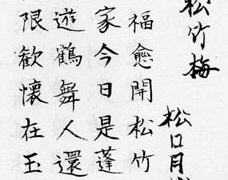 松竹梅
松口月
福愈開松竹
家今日是蓬
遊鶴舞人還
限歡懷在玉